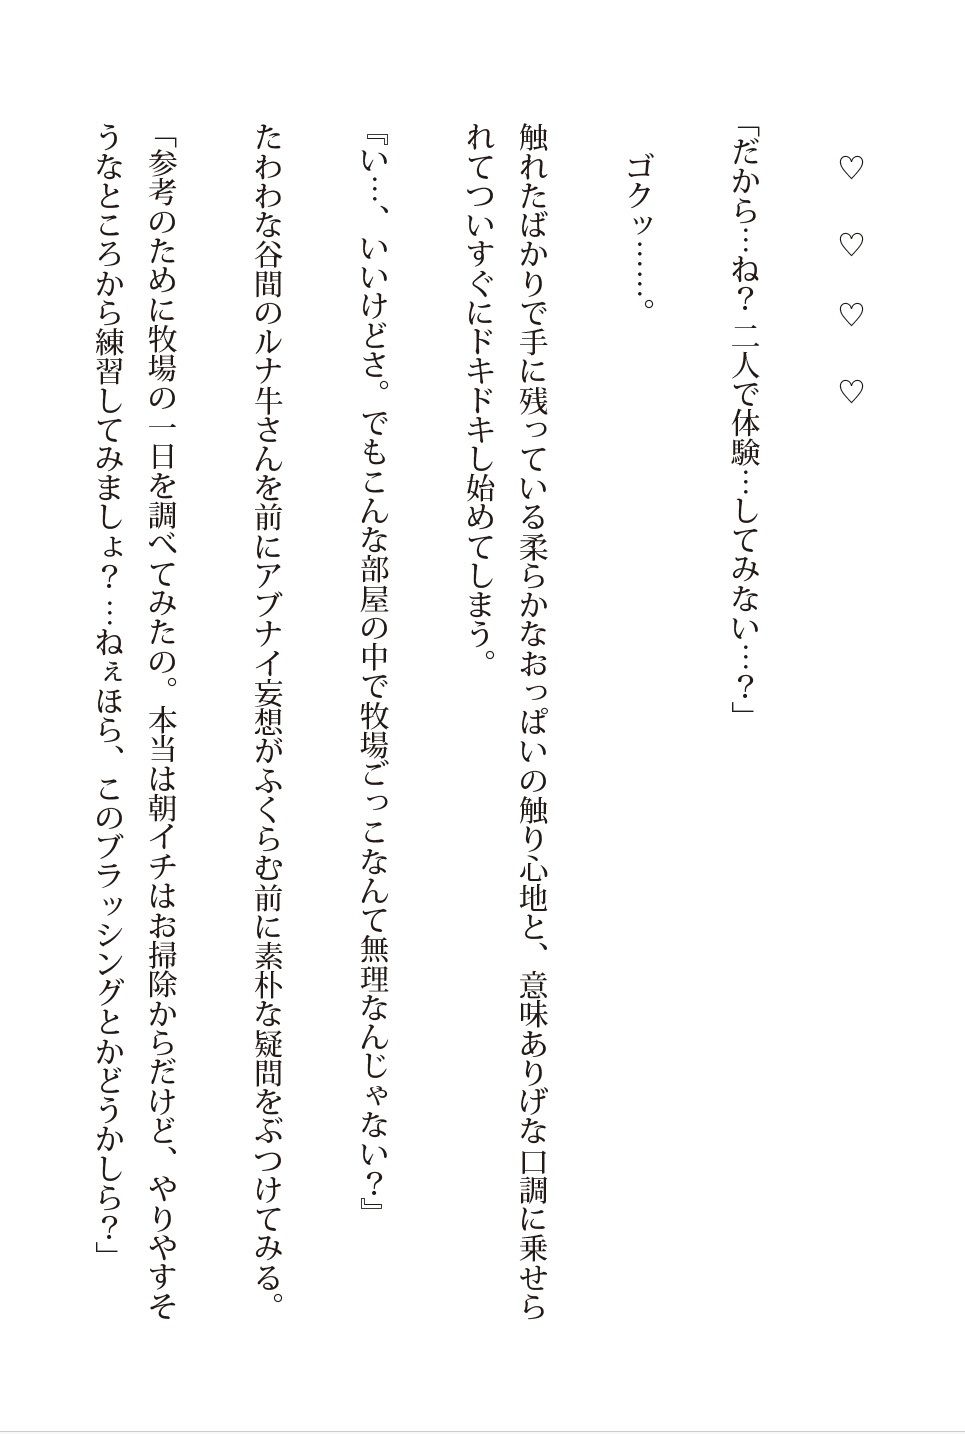 ♡ ♡ ♡ ♡
「だから…ね? 二人で体験…してみない…?」
ゴクッ……。
触れたばかりで手に残っている柔らかなおっぱいの触り心地と、意味ありげな口調に乗せら
れてついすぐにドキドキし始めてしまう。
『い…、いいけどさ。でもこんな部屋の中で牧場ごっこなんて無理なんじゃない?』
たわわな谷間のルナ牛さんを前にアブナイ妄想がふくらむ前に素朴な疑問をぶつけてみる。
「参考のために牧場の一日を調べてみたの。本当は朝イチはお掃除からだけど、やりやすそ
うなところから練習してみましょ?…ねぇほら、このブラッシングとかどうかしら?」